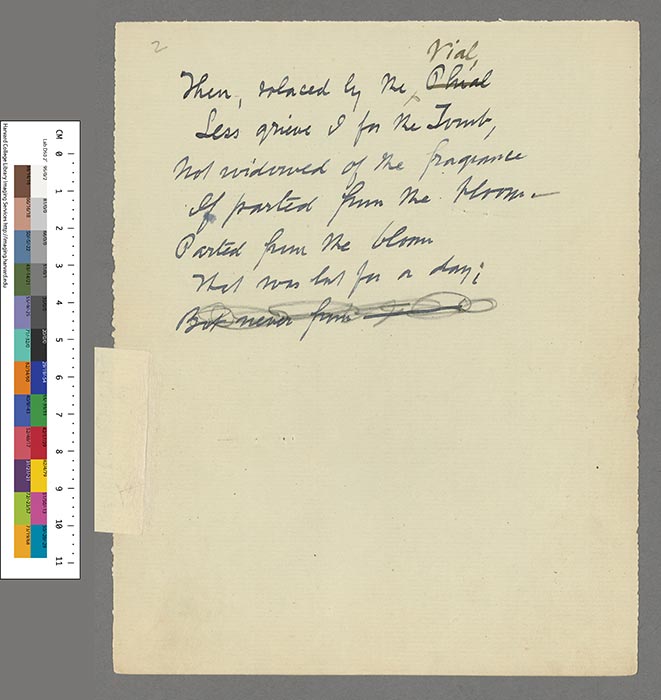 2
Vial,
Then, solaced by the Phial
Less grieve I for the Tomb,
Not widowed of the fragrance
If parted from the bloom—
Parted from the bloom
That was but for a day;
But never from
CM 0 1 2 3 4 5 6 7 8 9 10 11
Harvard College Library Imaging Services http://imaging.harvard.edu